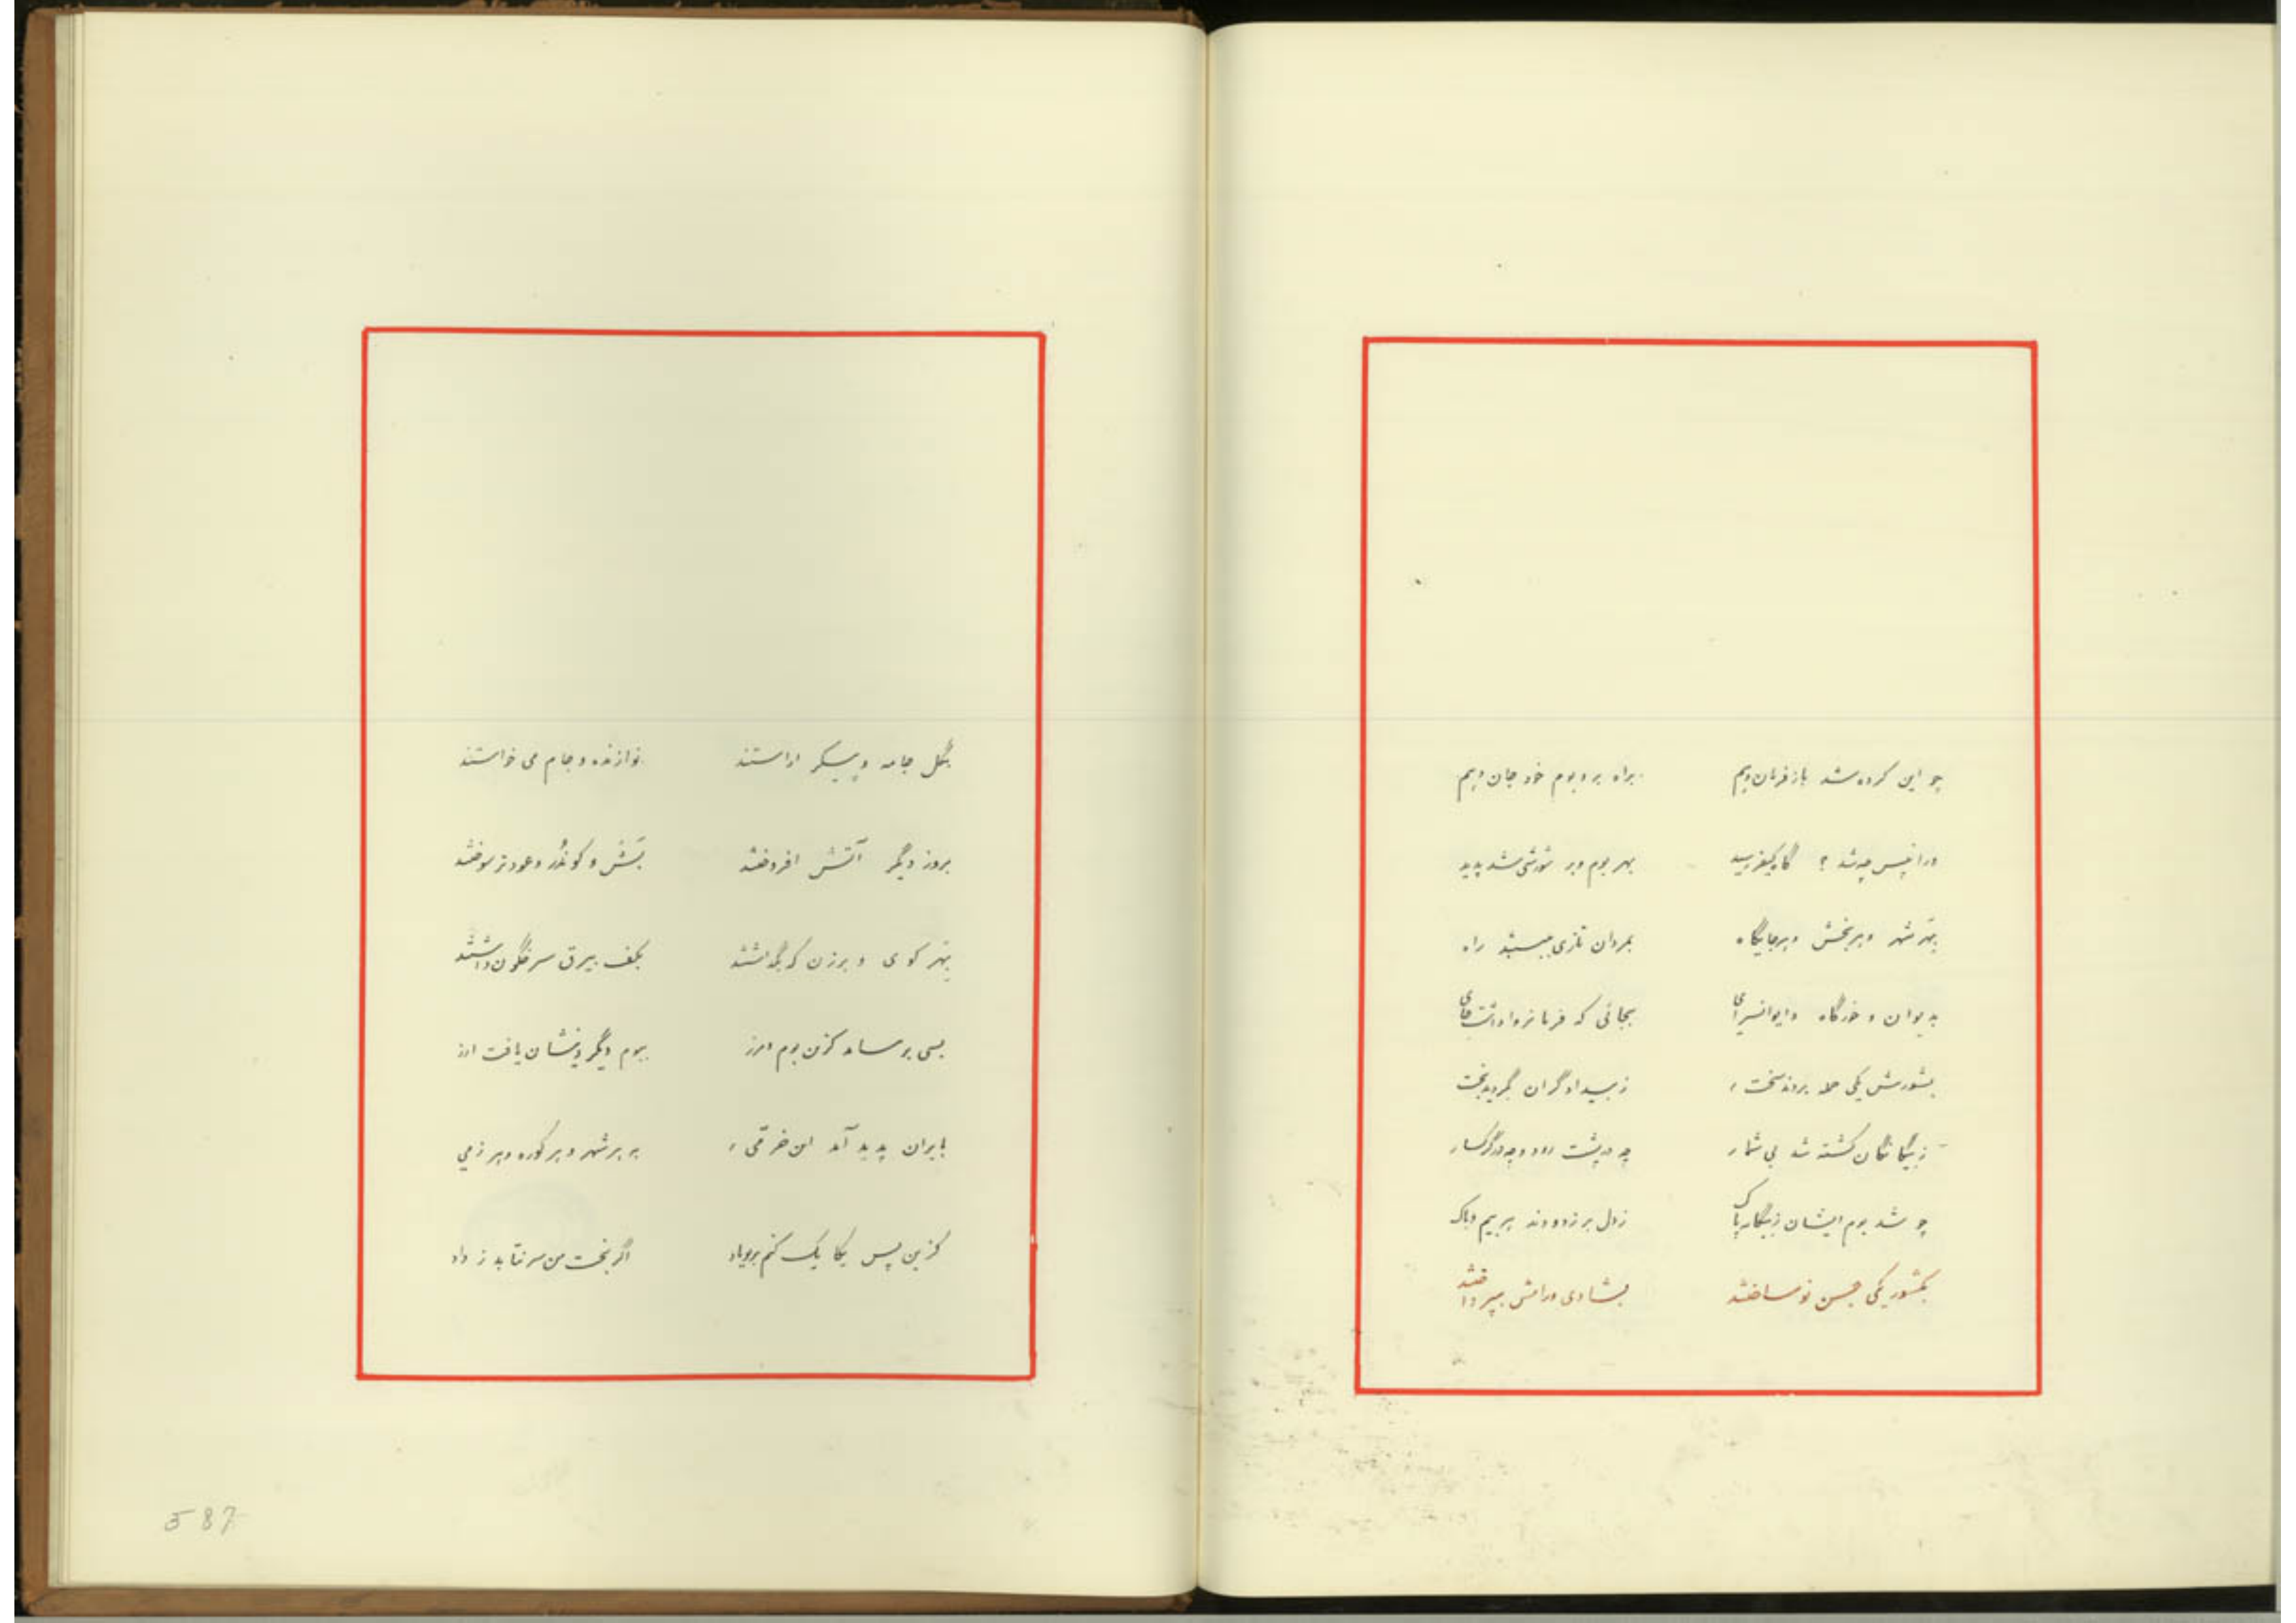 چو این کرده شد باز فرمان دهم براه بر و بوم خود جان دهم
شد؟ گاه کیفر رسید بهر بوم و بر شورشی شد پدید
بهر شهر و هر بخش و هر جایگاه بمردان تازی ببستند راه
بدیوان و خرگاه و ایوانسرای بجائی که فرمانروا داشت جای
بشورش یکی حمله بردند سخت زبیدادگران بگردید بخت
زبیگانگان کشته شد بی شمار چه در پشت رود و چه در
چو شد بوم ایشان زبیگانه پاک زدل بر زدودند هر بیم و باک
بکشور یکی جشن نو ساختند بشادی و رامش بپرداختند
بگل جامه و پیکر اراستند نوازنده و جام می خواستند
بروز دگر آتش افروختند و کوندر و عود تر سوختند
بهر کوی و برزن که بگذاشتند بکف بیرق سرنگون داشتند
بسی بر سامد کزن بوم و مرز ببوم دگر دینشان یافت ارز
بایران پدید آمد این خرّمی به هر شهر و هر کوره و هر زمی
کزین پس یکا یک کنم بر تو یاد اگر بخت من سر نتابد ز داد
587